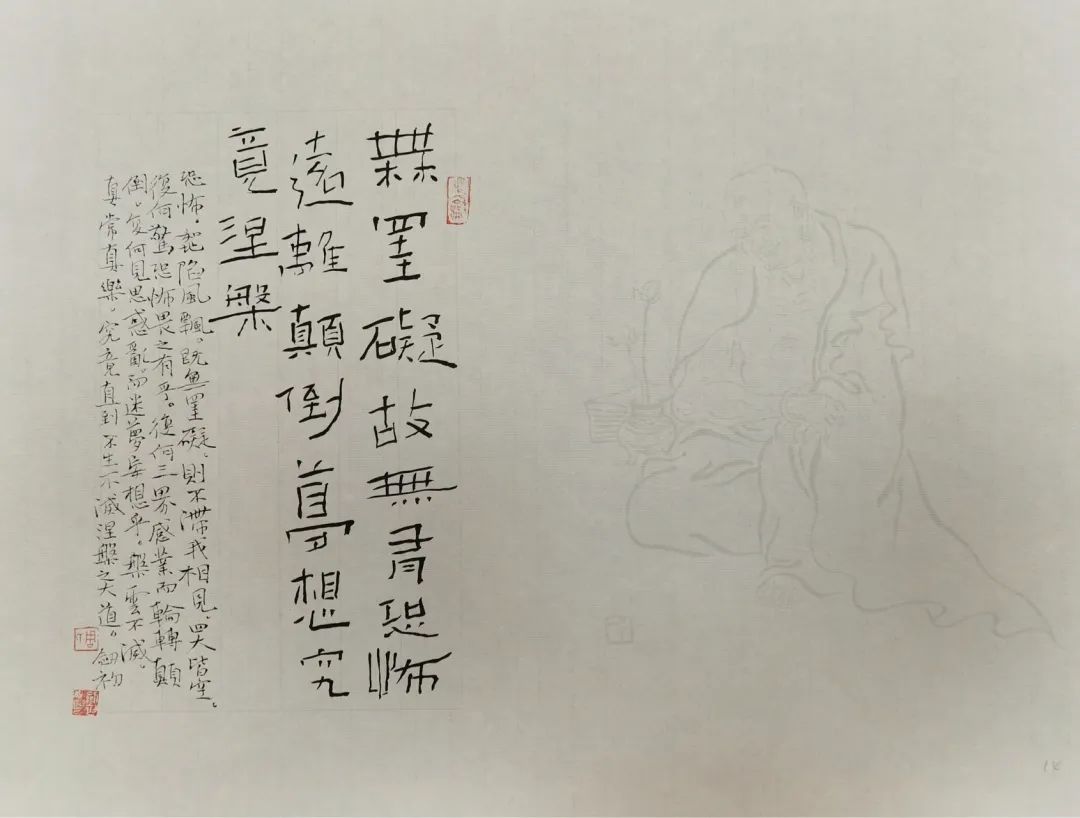 橆罣礙故無有恐怖
遠離顛倒夢想究
竟涅槃
恐怖。陷風飄。既無罣礙。則不滯我相見。四大皆空。
復何驚恐怖畏之有乎。復何三界惑業而輪轉顛
倒。復何見思惑亂。而迷夢妄想乎。槃雲不滅。
真常真樂。究竟直到不生不滅涅槃之大道。劍初